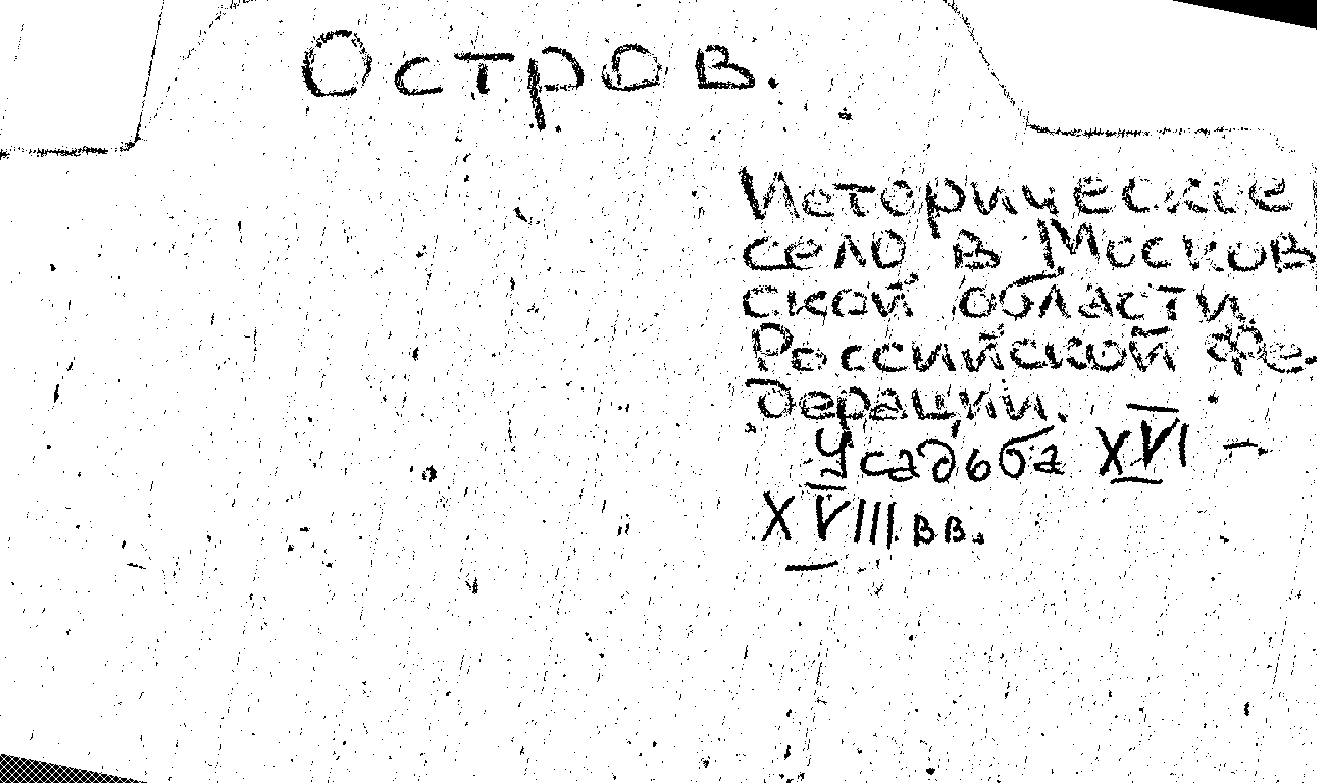 Остров.
Историческое
село в Москов
ской области
Российской Фе-
дерации.
Усадьба XVI –
XVIII вв.